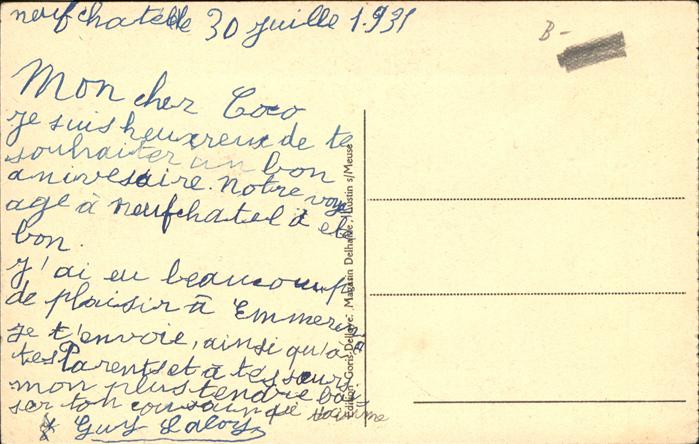 neufchatel le 30 juille 1.931
B-
Mon cher Coco
je suis heuxreux de te
souhaiter un bon
anivesaire. Notre voy
age à neufchatel à eté
bon.
J'ai eu beaucoup
de plaisir à Emmer
je t'envoie, ainsi qu'à
tes Parents et à tes sœurs
mon plus tendre bai
ser ton cousain qe t'aime
Guy Laloy
Edition "Goris-Delloye", Magasin Delhaize, Lustin s/Meuse